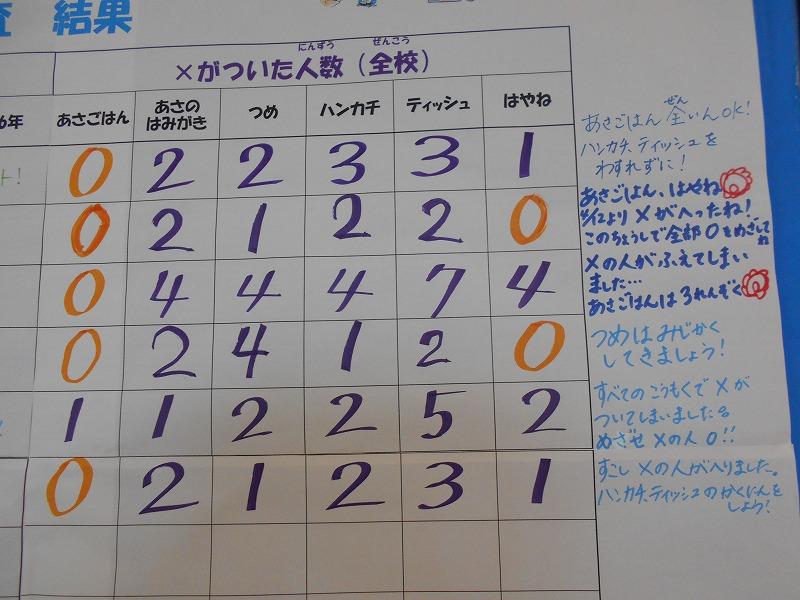 査 結果
にんずう ぜんこう
×がついた人数(全校)
6年 あさごはん あさの はみがき つめ ハンカチ ティッシュ はやね
ト! 0 2 2 3 3 1
0 2 1 2 2 0
0 4 4 4 7 4
0 2 4 1 2 0
1 1 2 2 5 2
0 2 1 2 3 1
ぜん
あさごはん 全いんOK!
ハンカチ、ティッシュを
わすれずに!
あさごはん、はやね
より ×がへったね!
このちょうしで全部0をめざしてね
×の人がふえてしまい
ました…
あさごはんは3れんぞく
つめはみじかく
してきましょう!
すべてのこうもくで×が
ついてしまいました。
めざせ×の人0!!
すこし×の人が入りました。
ハンカチ、ティッシュのかくにんを
しよう!